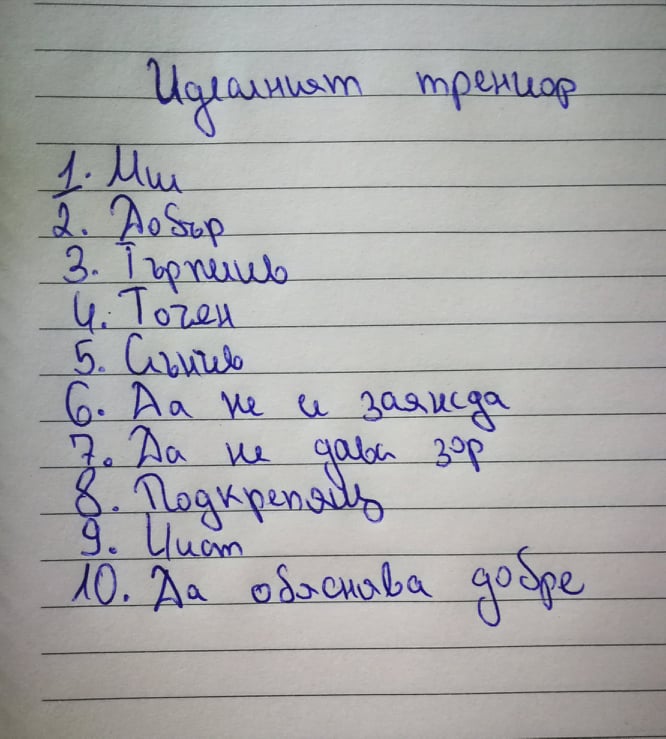 Идеалният треньор
1. Мил
2. Добър
3. Търпелив
4. Точен
5. Сънлив
6. Да не и заяжда
7. Да не дава зор
8. Подкрепящ
9. Чист
10. Да обяснява добре